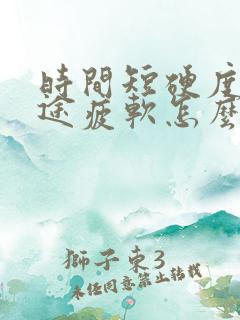 時間短硬度
途疲軟怎麼
獅子東3
未經同意禁止轉載